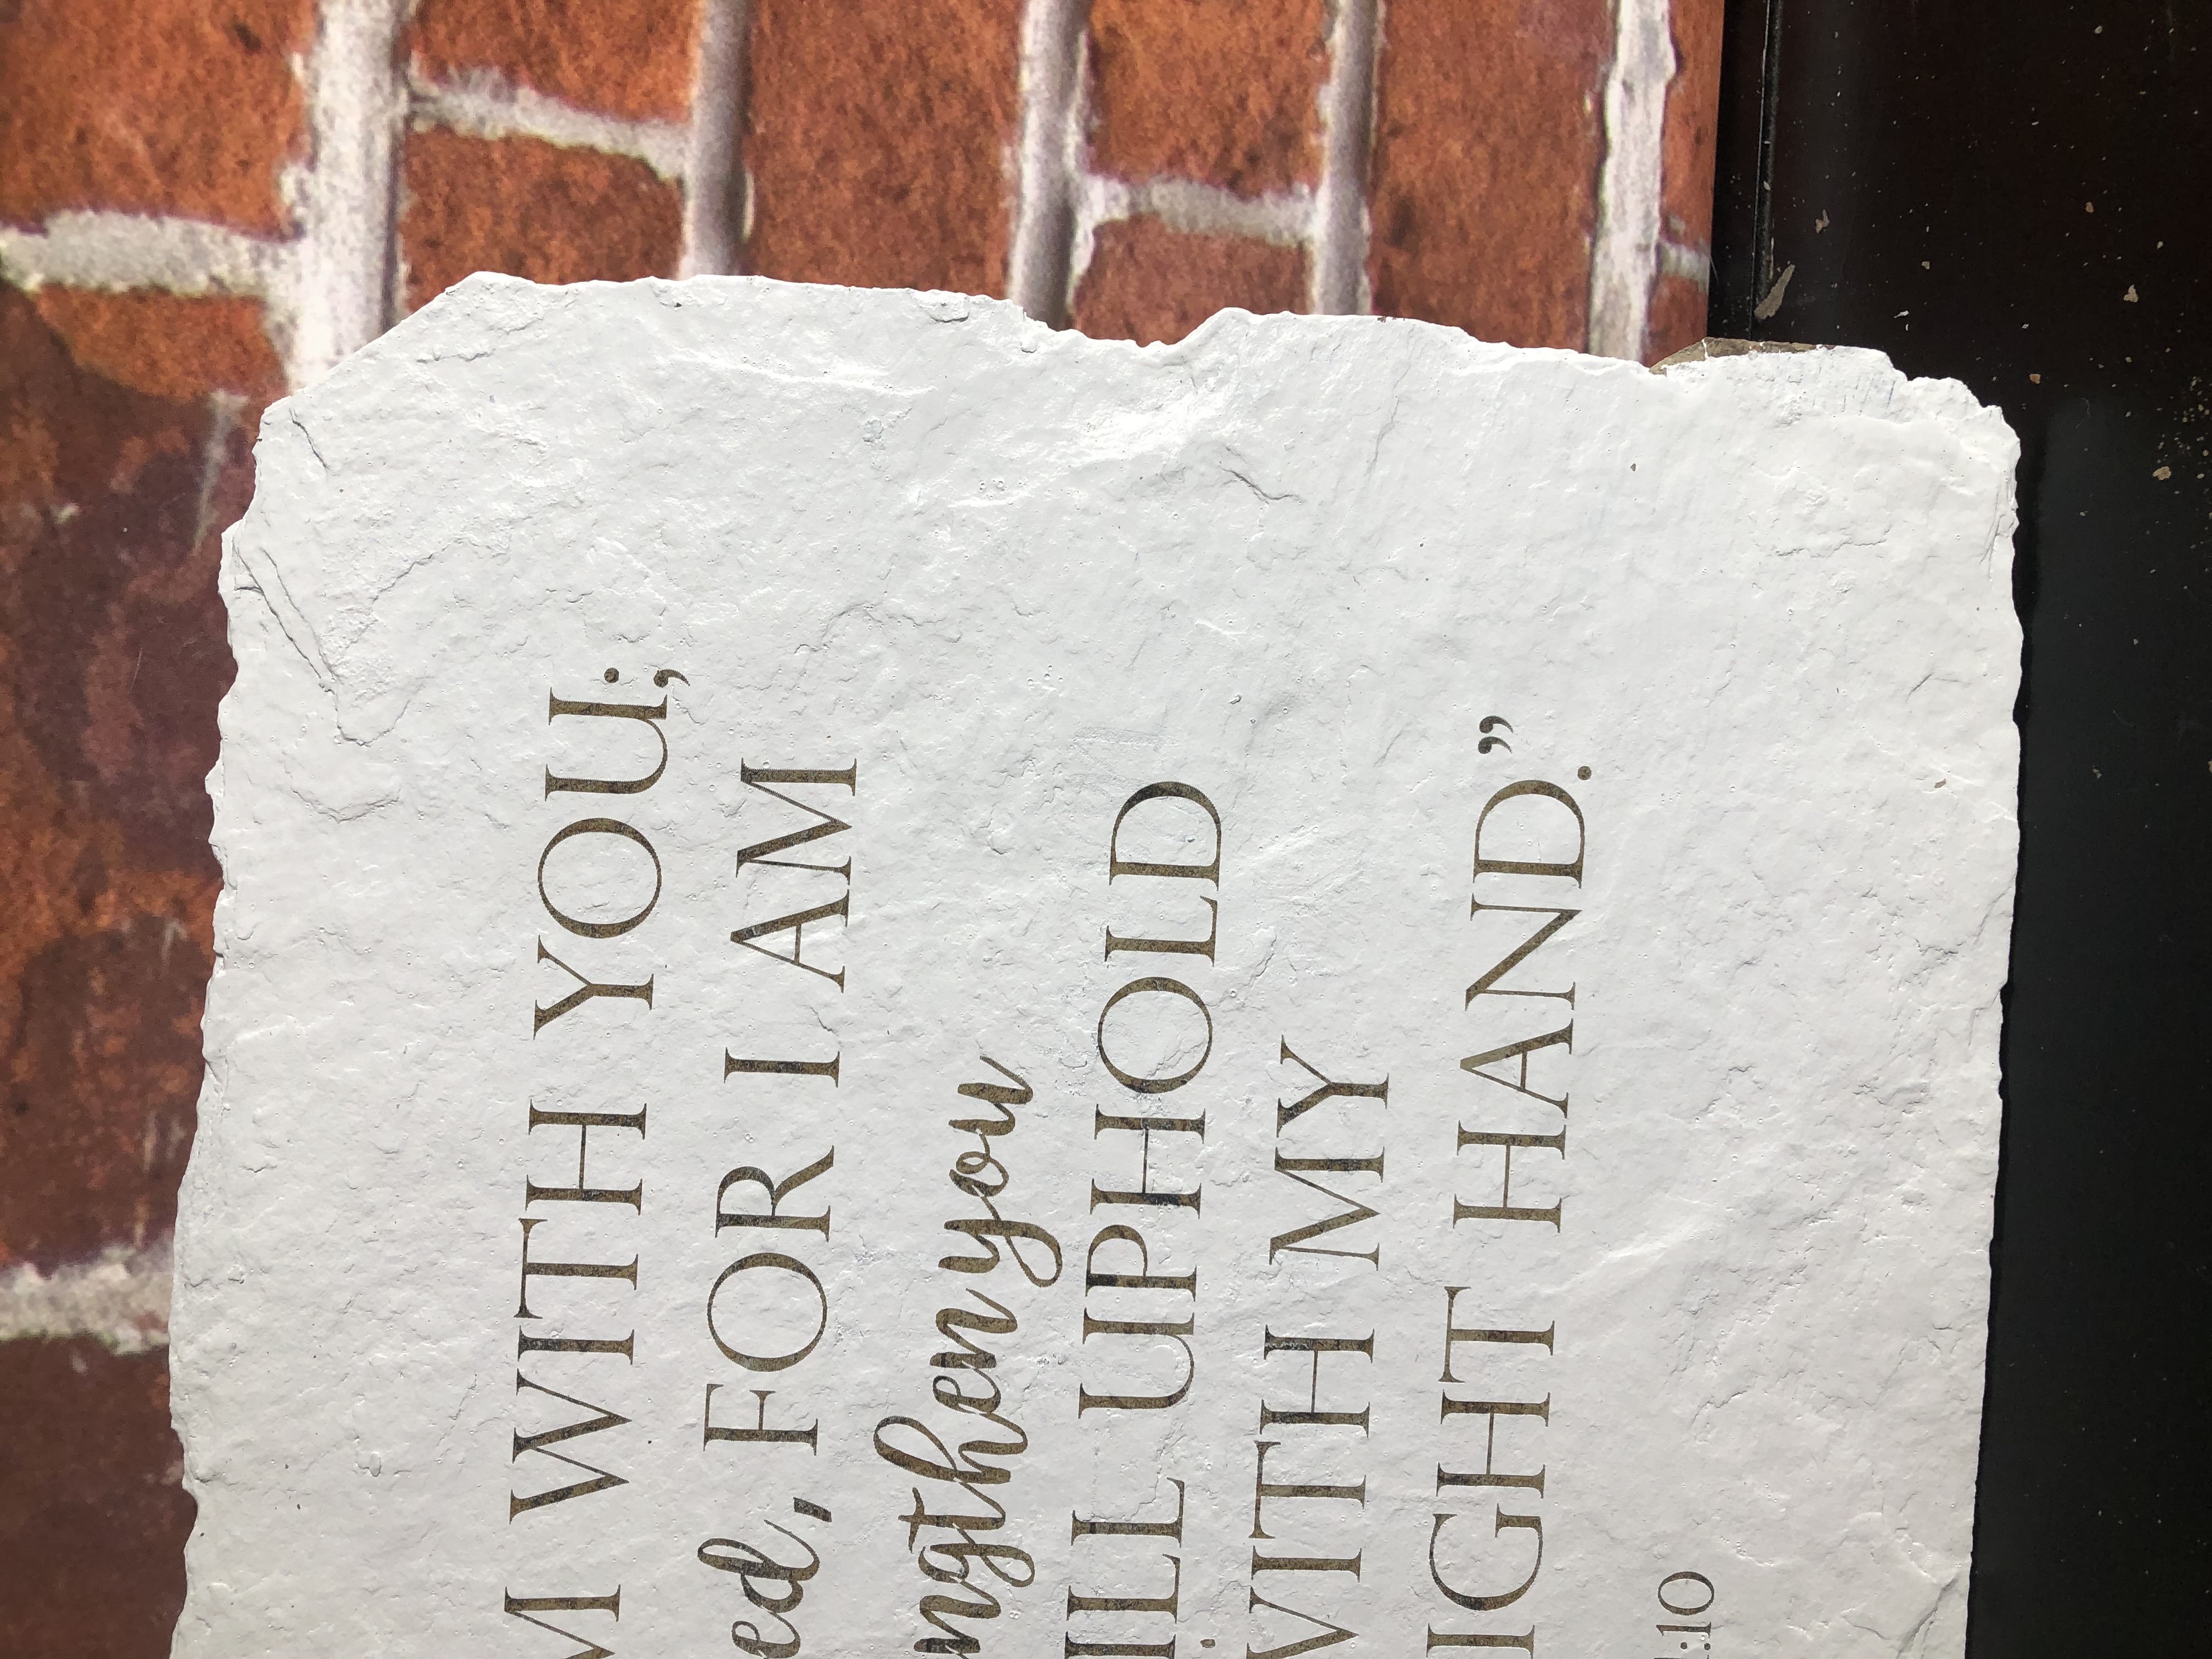 M WITH YOU;
ed, FOR I AM
ngthen you
ILL UPHOLD
WITH MY
IGHT HAND."
:10